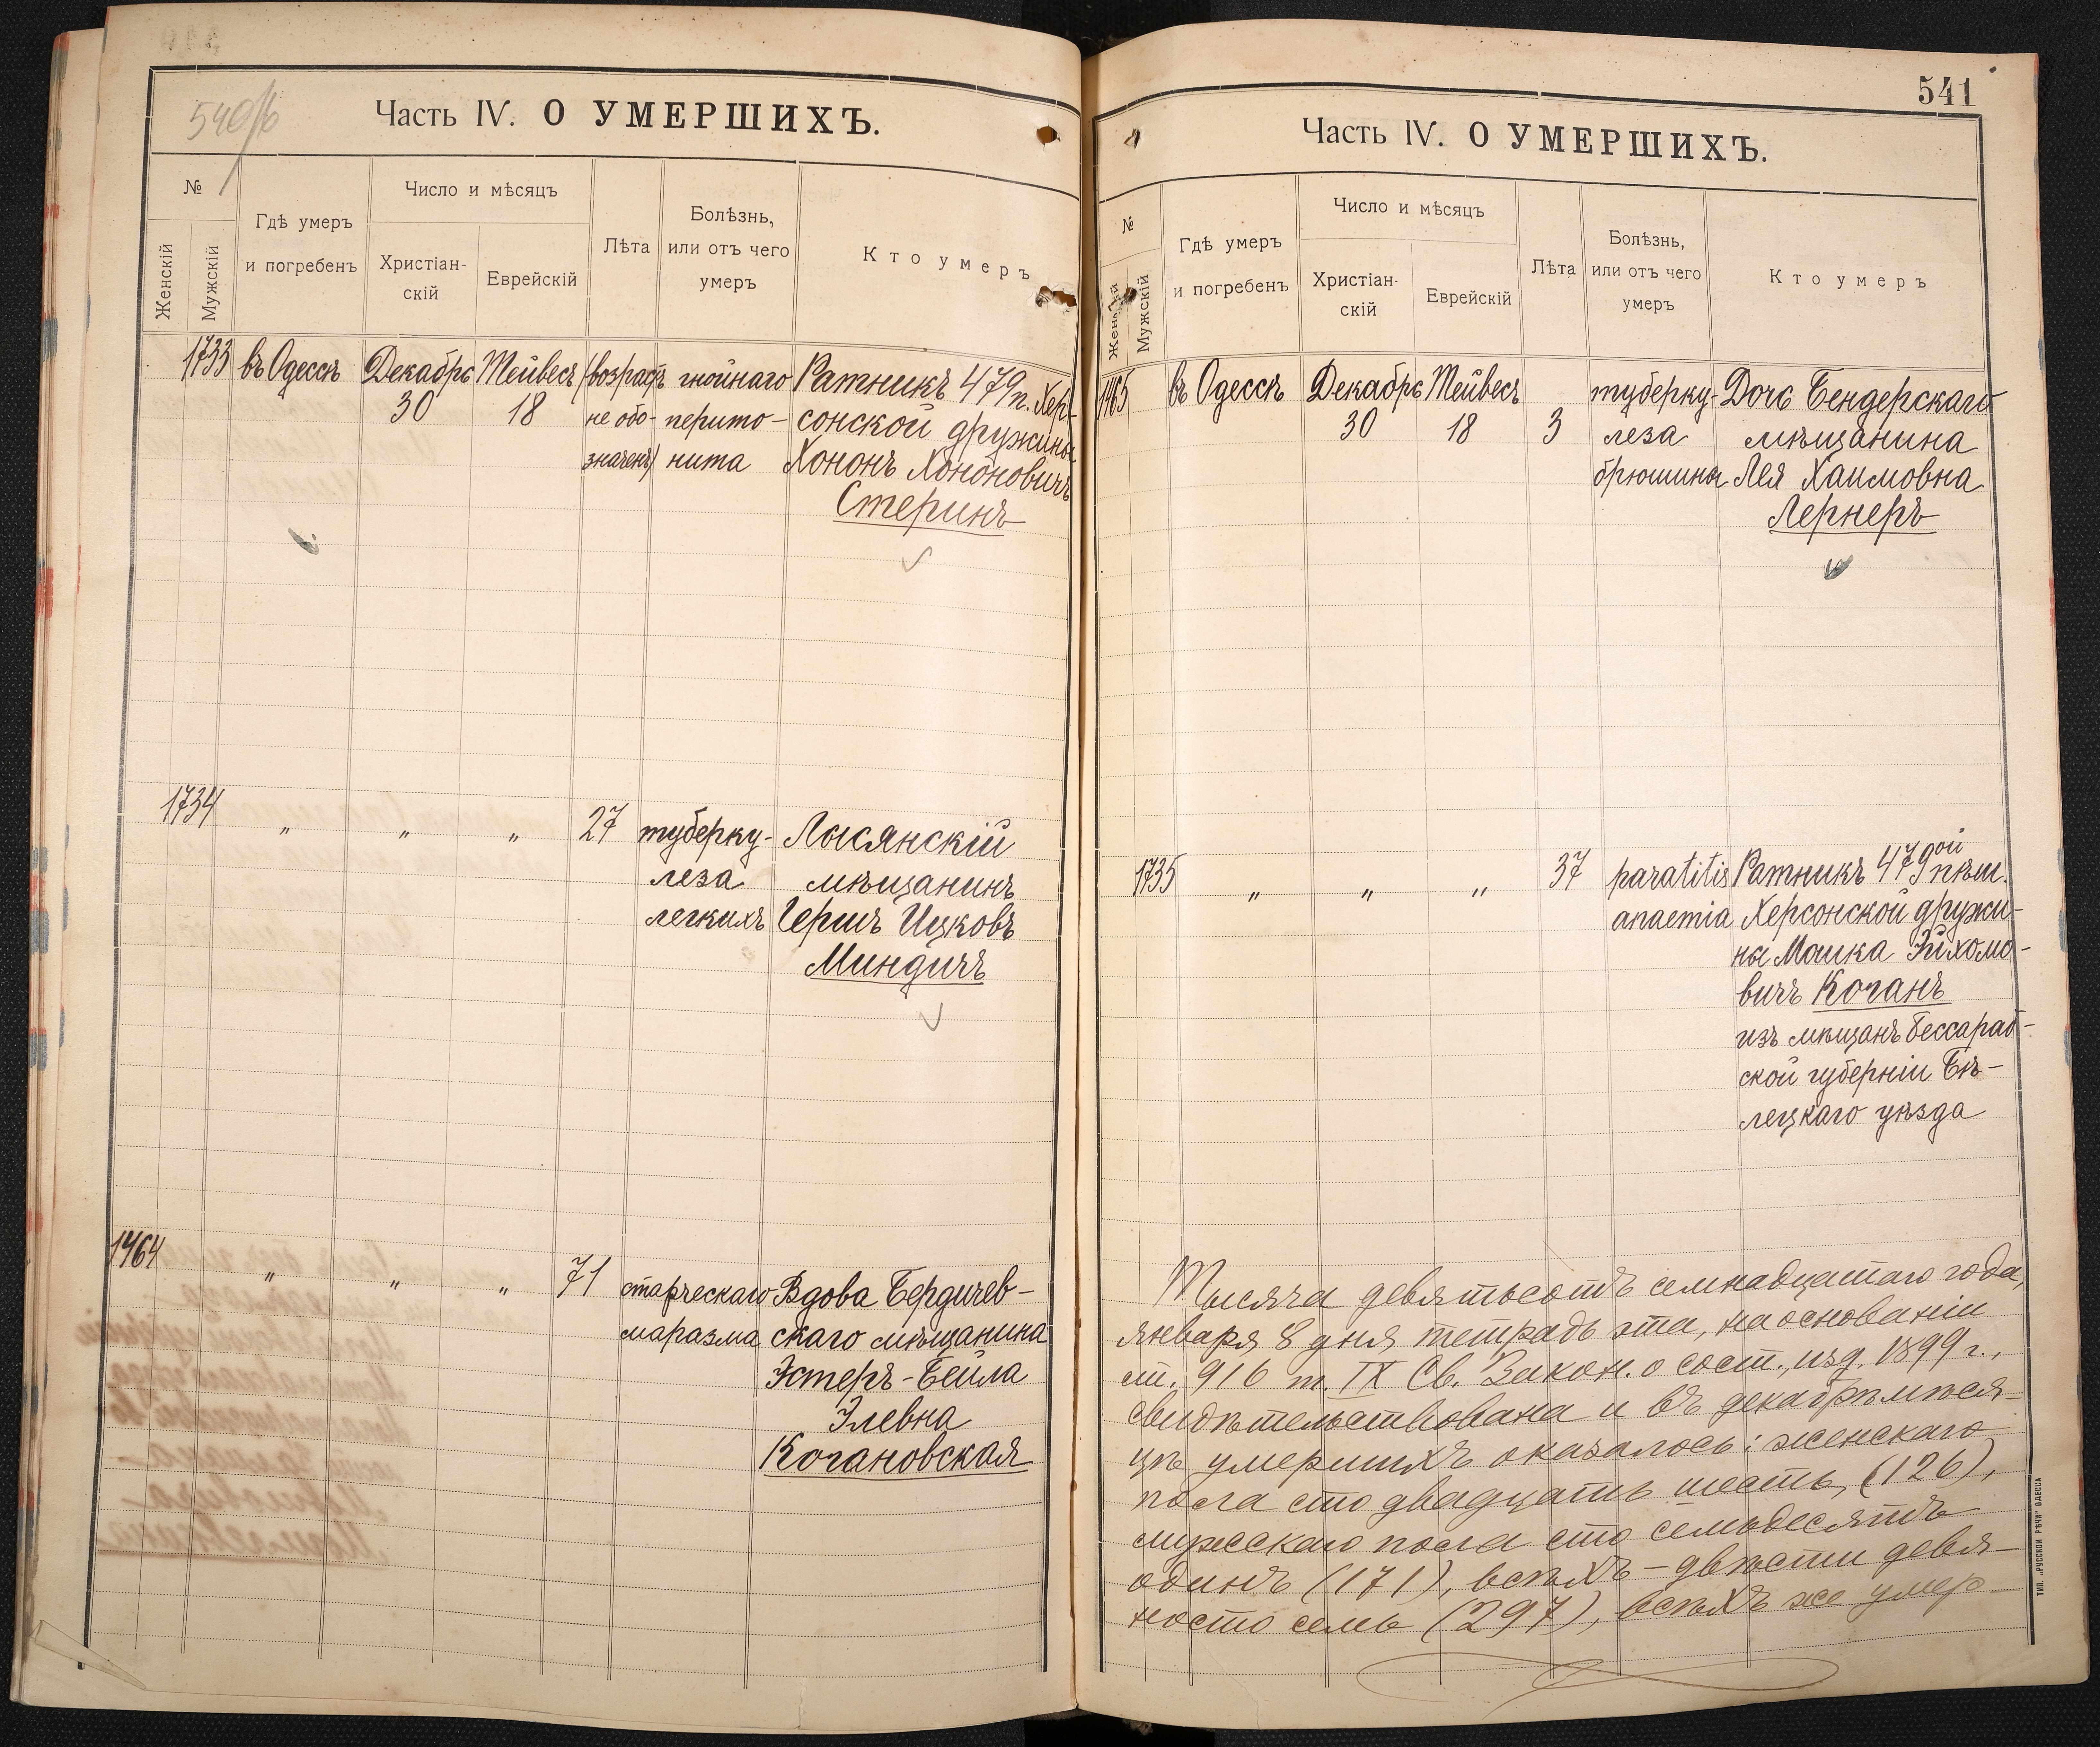 540/б
Часть IV. О УМЕРШИХЪ.
№
Женскій
Мужскій
Гдѣ умеръ
и погребенъ
Число и мѣсяцъ
Христіан-
скій
Еврейскій
Лѣта
Болѣзнь,
или отъ чего
умеръ
Кто умеръ
1733 въ Одессѣ Декабрь Тейвесъ (возрастъ гнойнаго Ратникъ 479 п. Хер-
30 18 не обо- перито- сонской дружины
значенъ) нита Хононъ Хононовичъ
Стеринъ
1734 " " " 27 туберку- Лысянскій
леза мѣщанинъ
легкихъ Гершъ Ицковъ
Миндичъ
1464 " " " 71 старческаго Вдова Бердичев-
маразма скаго мѣщанина
Эстеръ-Бейла
Элевна
Когановская
541
Часть IV. О УМЕРШИХЪ.
№
Женскій
Мужскій
Гдѣ умеръ
и погребенъ
Число и мѣсяцъ
Христіан-
скій
Еврейскій
Лѣта
Болѣзнь,
или отъ чего
умеръ
Кто умеръ
1465 въ Одессѣ Декабрь Тейвесъ туберку- Дочь Бендерскаго
30 18 3 леза мѣщанина
брюшины Лея Хаимовна
Лернеръ
1735 " " " 37 paratitis Ратникъ 479ой пѣш.
anaemia Херсонской дружи-
ны Мошка
вичъ Коганъ
изъ мѣщанъ Бессараб-
ской губерніи Бѣ-
лецкаго уѣзда
Тысяча девятьсотъ семнадцатаго года,
января 8 дня тетрадь эта, на основаніи
ст. 916 т. IX Св. Закон. о сост., изд. 1899 г.,
свидѣтельствована и въ декабрѣ мѣся-
цѣ умершихъ оказалось: женскаго
пола сто двадцать шесть, (126),
мужскаго пола сто семьдесятъ
одинъ (171), всѣхъ - двѣсти девя-
носто семь (297), всѣхъ же умер-
ТИП. „РУССКОЙ РѢЧИ" ОДЕССА